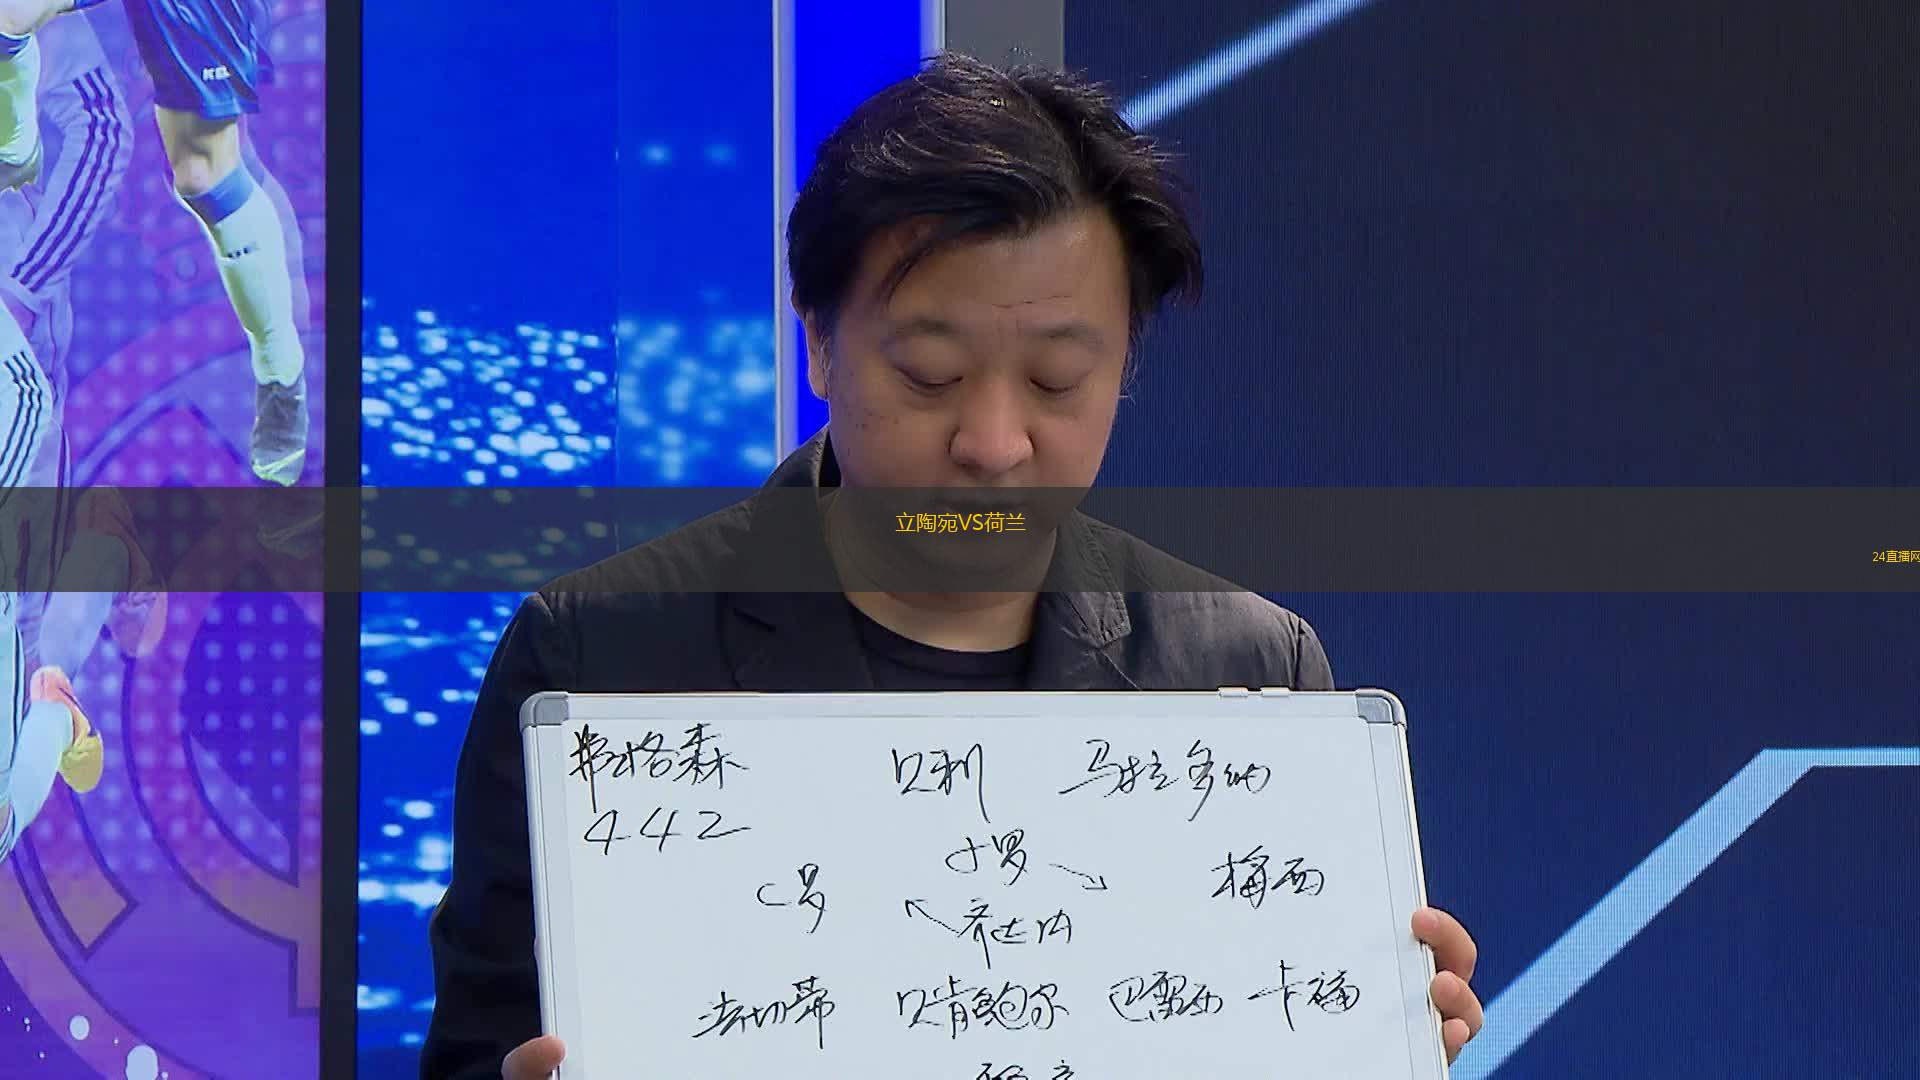 立陶宛VS荷兰
24直播网
弗格森 贝利 马拉多纳
442
小罗
C罗 梅西
齐达内
法切蒂 贝肯鲍尔 巴雷西 卡福